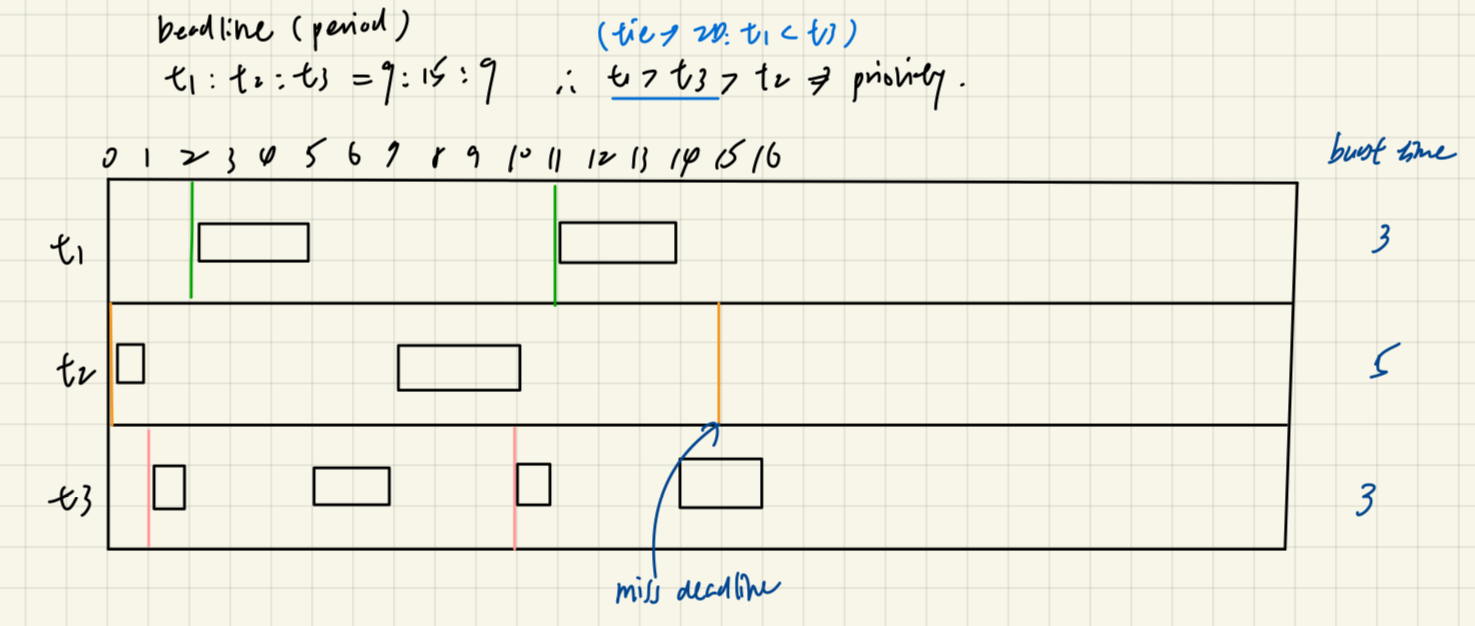 beadline (period)
(tie → 20: t1 < t3)
t1 : t2 : t3 = 9 : 15 : 9 ∴ t1 > t3 > t2 ⇒ priority.
0 1 2 3 4 5 6 7 8 9 10 11 12 13 14 15 16
burst time
t1 3
t2 5
t3 3
miss deadline